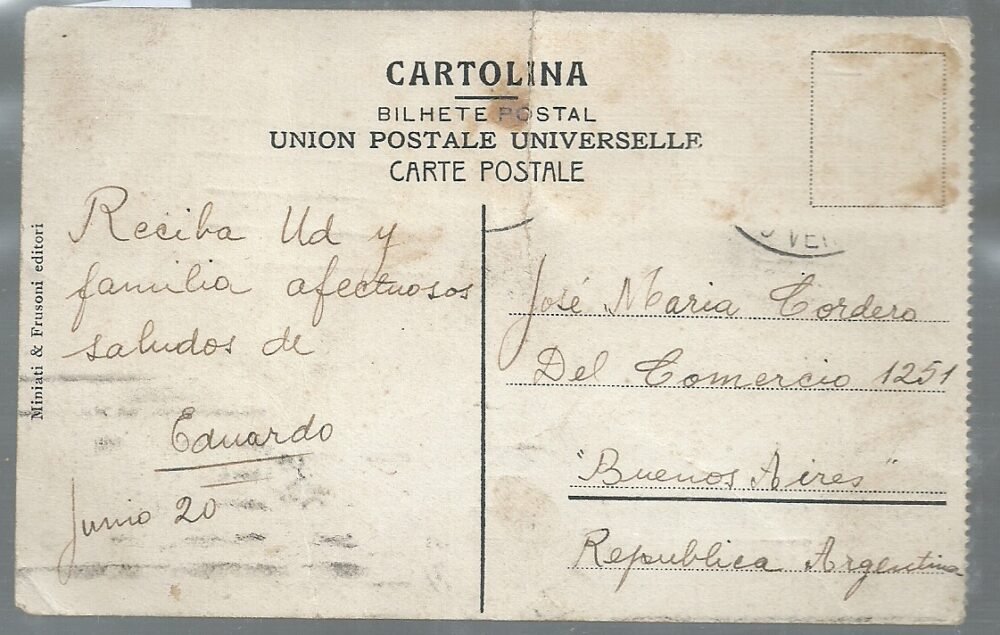 CARTOLINA
BILHETE POSTAL
UNION POSTALE UNIVERSELLE
CARTE POSTALE
Miniati & Frusoni editori
Reciba Ud y
familia afectuosos
saludos de
Eduardo
Junio 20
José Maria Cordero
Del Comercio 1251
"Buenos Aires"
Republica Argentina